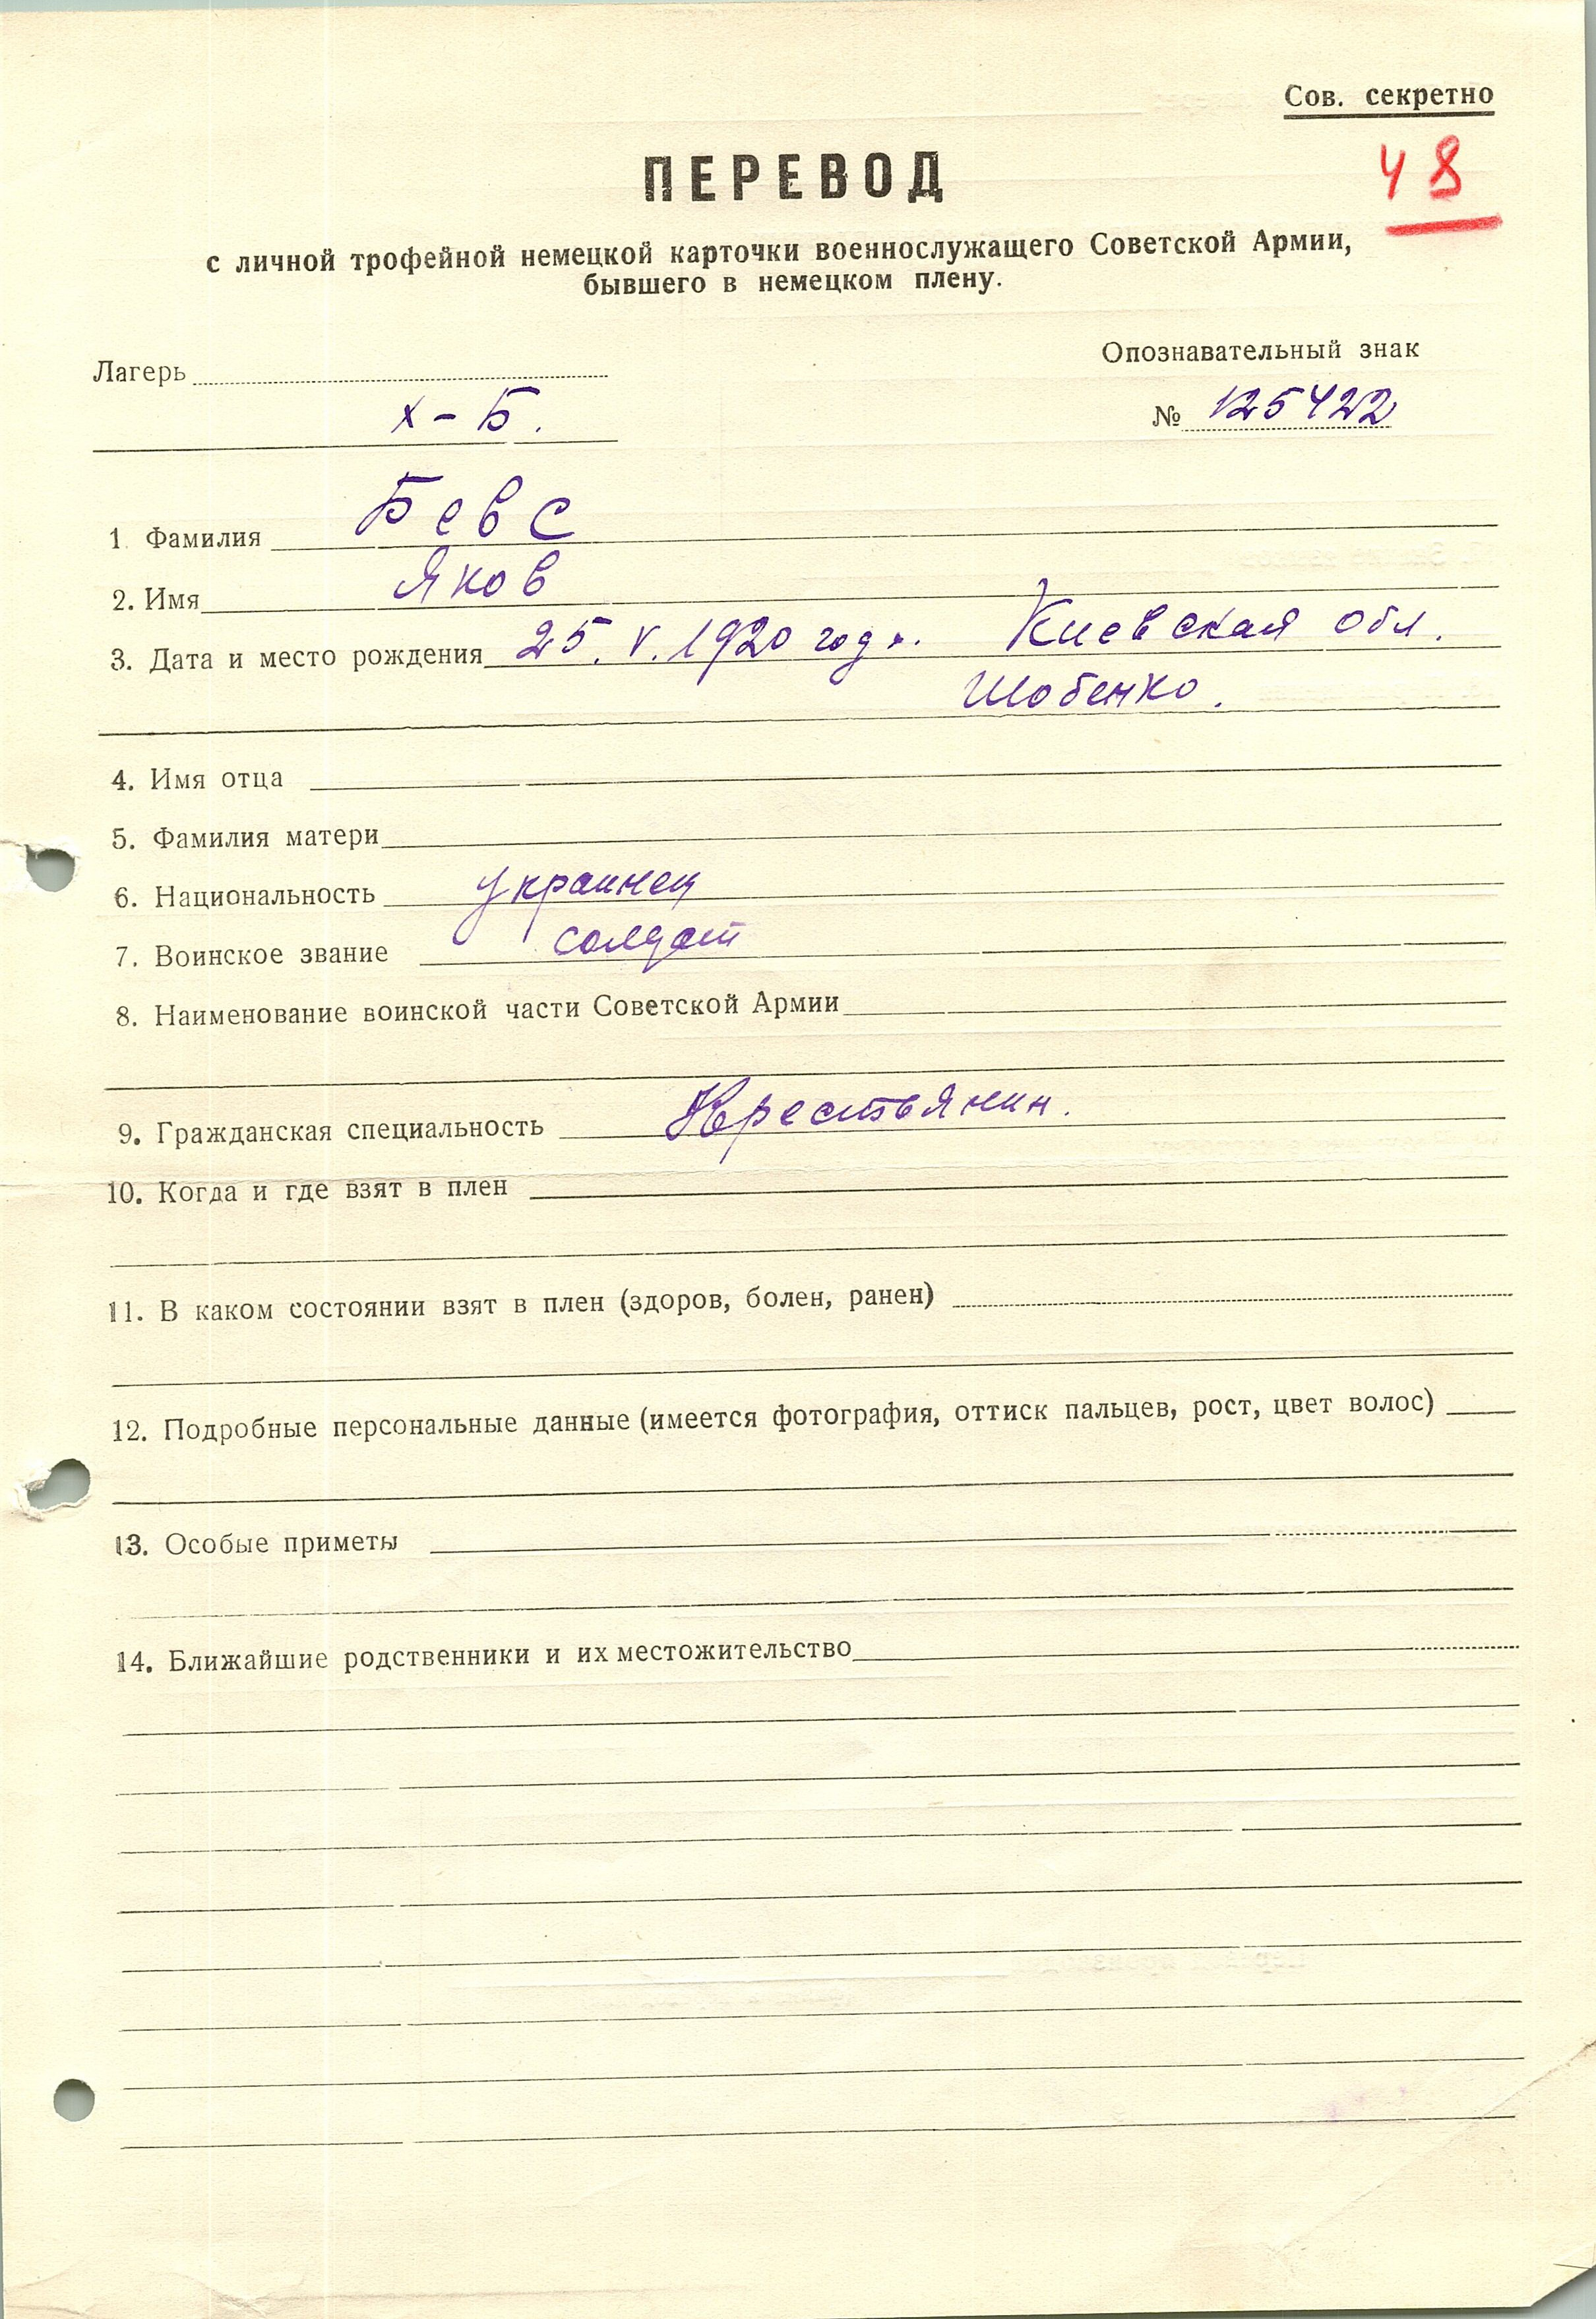 Сов. секретно
48
ПЕРЕВОД
с личной трофейной немецкой карточки военнослужащего Советской Армии,
бывшего в немецком плену.
Лагерь
Опознавательный знак
х-Б.
№ 125422
1. Фамилия Бевс
2. Имя Яков
3. Дата и место рождения 25. V. 1920 года. Киевская обл.
Шобенко.
4. Имя отца
5. Фамилия матери
6. Национальность украинец
7. Воинское звание солдат
8. Наименование воинской части Советской Армии
9. Гражданская специальность Крестьянин.
10. Когда и где взят в плен
11. В каком состоянии взят в плен (здоров, болен, ранен)
12. Подробные персональные данные (имеется фотография, оттиск пальцев, рост, цвет волос)
13. Особые приметы
14. Ближайшие родственники и их местожительство